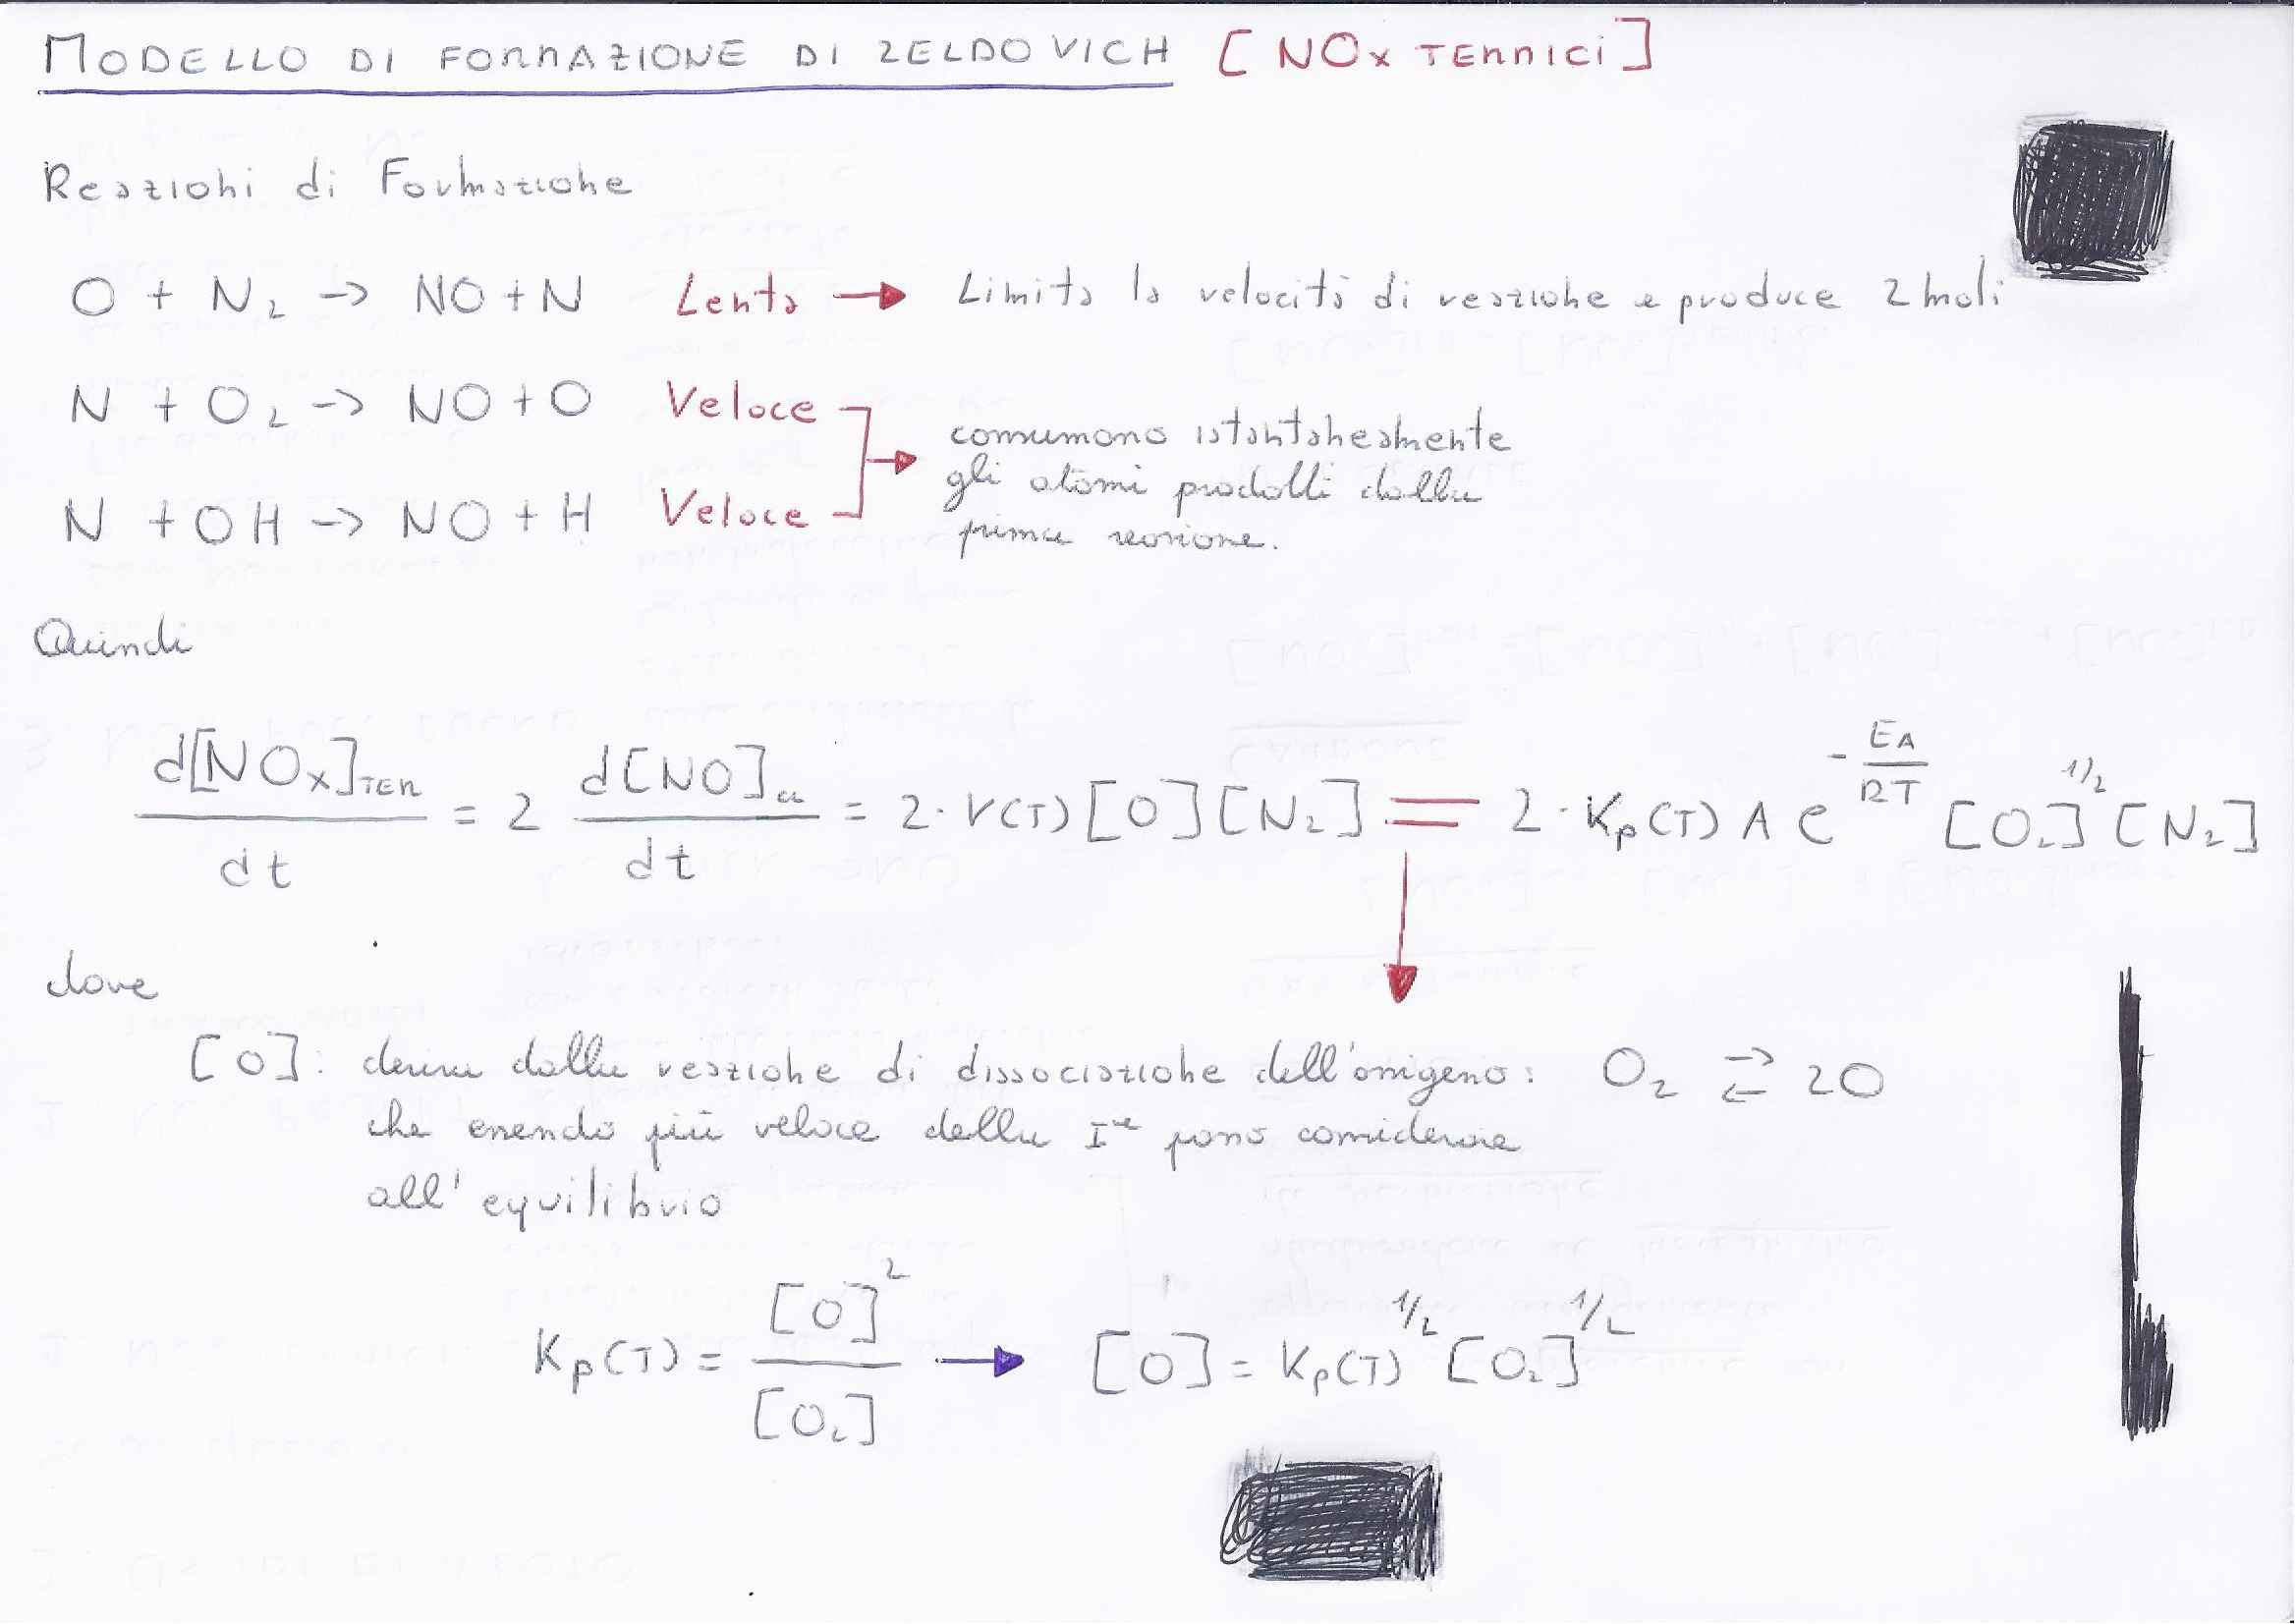 MODELLO DI FORMAZIONE DI ZELDOVICH [NOx TERMICI]
Reazioni di Formazione
O + N₂ -> NO + N Lenta → Limita la velocità di reazione e produce 2 moli
N + O₂ -> NO + O Veloce
N + OH -> NO + H Veloce
consumano istantaneamente
gli atomi prodotti dalla
prima reazione.
Quindi
d[NOx]TER / dt = 2 d[NO] / dt = 2 · V(T) [O] [N₂] = 2 · Kp(T) A e^(-EA/RT) [O₂]^1/2 [N₂]
dove
[O]: deriva dalla reazione di dissociazione dell'ossigeno: O₂ ⇄ 2O
che essendo più veloce della Iª posso considerare
all'equilibrio
Kp(T) = [O]² / [O₂] → [O] = Kp(T)^1/2 [O₂]^1/2